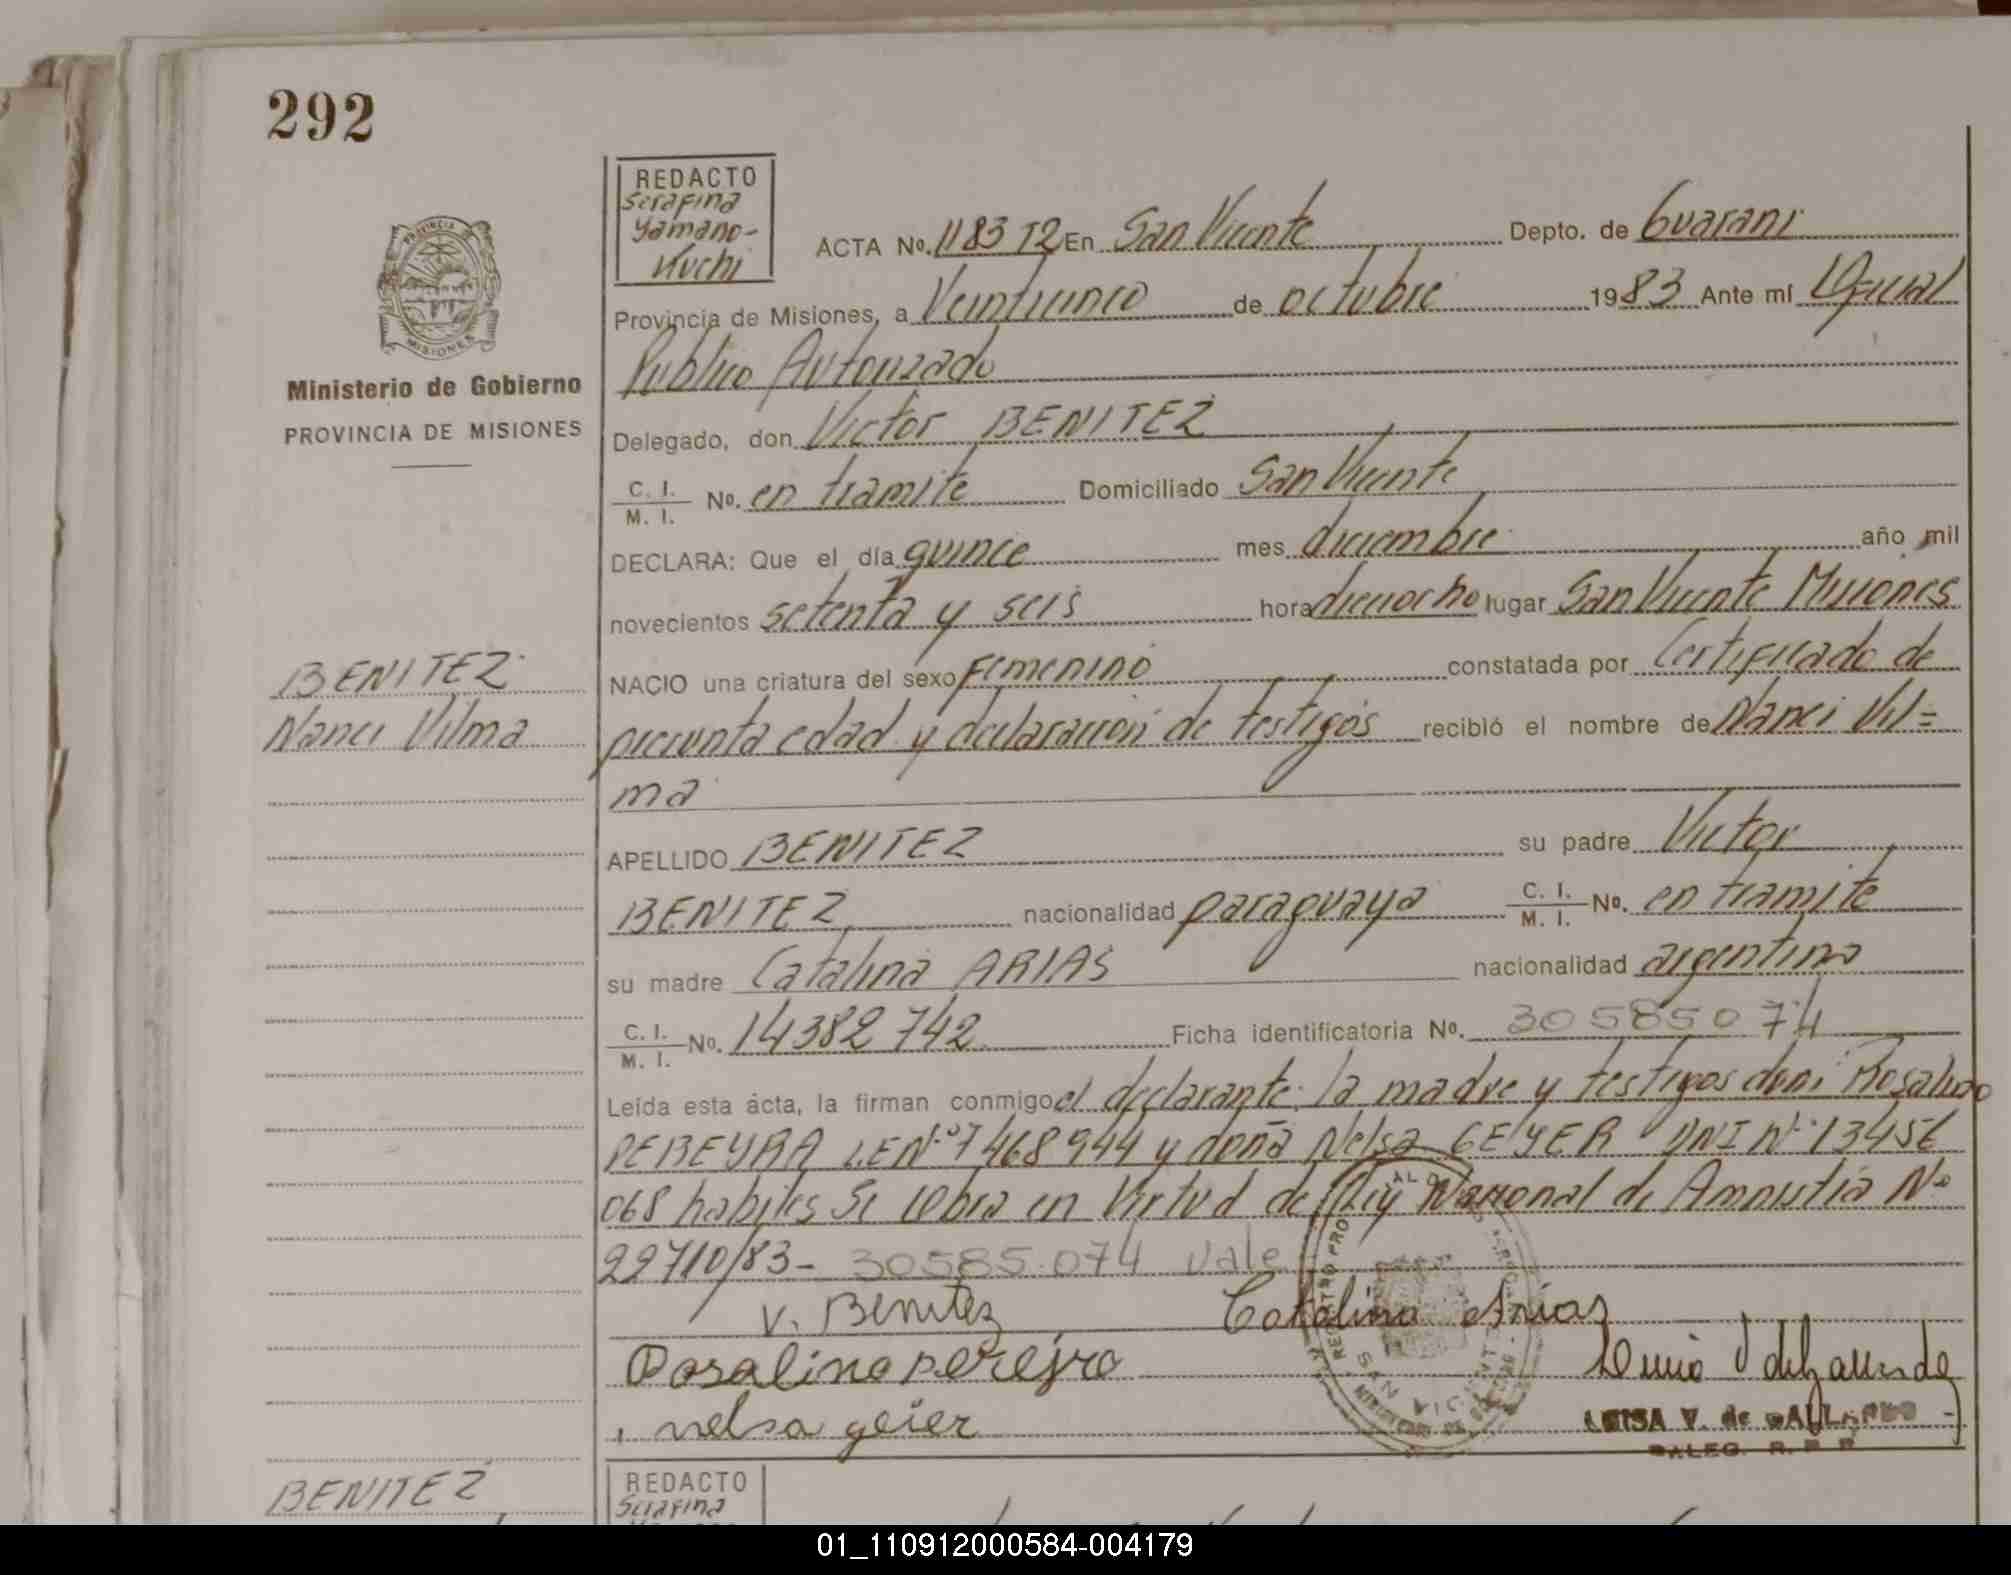 292
REDACTO
Serafina
Yamano-
Kuchi
ACTA No. 1183 T2 En San Vicente Depto. de Guarani
Provincia de Misiones, a Veinticinco de octubre 1983 Ante mí Oficial
Publico Autorizado
Ministerio de Gobierno
PROVINCIA DE MISIONES
Delegado, don Victor BENITEZ
C. I. / M. I. No. en tramite Domiciliado San Vicente
DECLARA: Que el día quince mes diciembre año mil
novecientos setenta y seis hora dieciocho lugar San Vicente Misiones
BENITEZ
NACIO una criatura del sexo femenino constatada por Certificado de
Nanci Vilma
precunta edad y declaración de testigos recibió el nombre de Nanci Vil=
ma
APELLIDO BENITEZ su padre Victor
BENITEZ nacionalidad paraguaya C. I. / M. I. No. en tramite
su madre Catalina ARIAS nacionalidad argentina
C. I. / M. I. No. 14382742 Ficha identificatoria No. 30585074
Leída esta ácta, la firman conmigo el declarante, la madre y testigos don: Rosalino
PEREYRA L.E Nº 7468944 y doña Nelsa GEYER DNI Nº 13456
068 habiles Se labra en Virtud de Ley Nacional de Amnistia No
22710/83- 30585.074 Vale
V. Benitez Catalina Arias
Rosalino pereyra
nelsa geier
LUISA V. de GALLARDO
DELEG. R. P. P.
PROVINCIA
MISIONES
SAN VICENTE
BENITEZ
REDACTO
Serafina
01_110912000584-004179